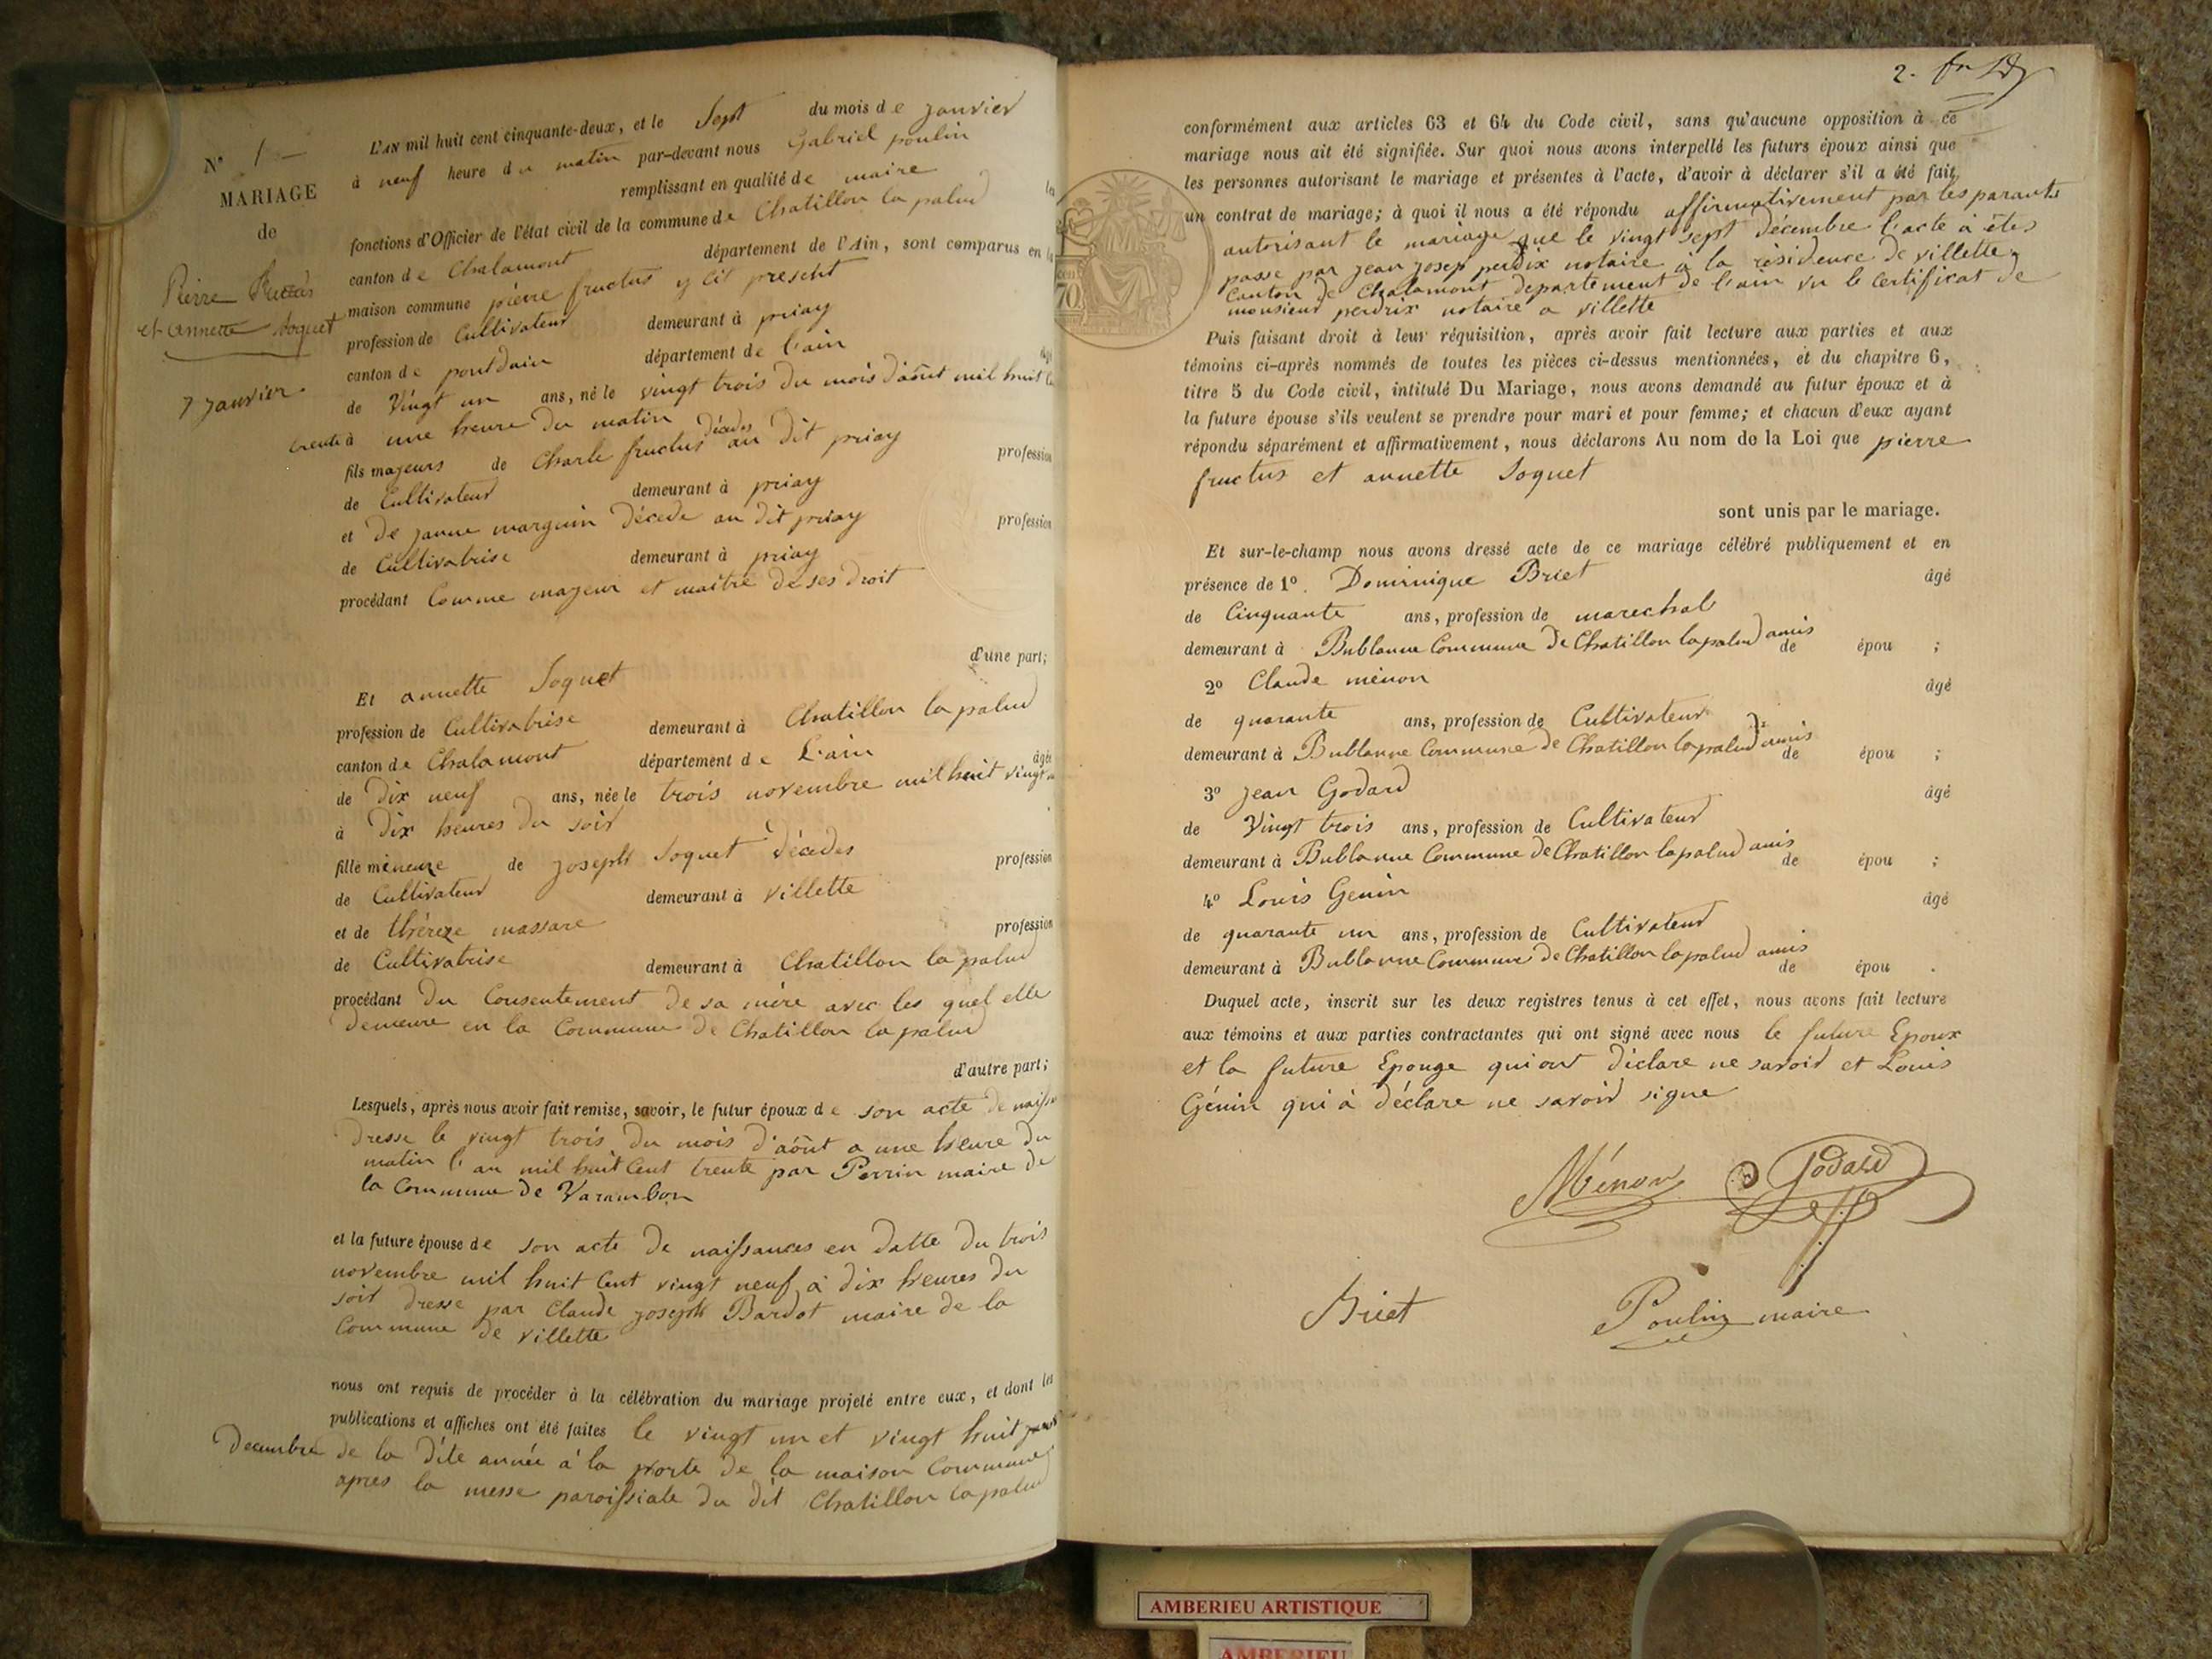 N° 1 —
MARIAGE
de
Pierre
et Annette Soquet
7 Janvier
L'AN mil huit cent cinquante-deux, et le Sept du mois de Janvier
à neuf heure du matin par-devant nous Gabriel poulin
remplissant en qualité de maire
fonctions d'Officier de l'état civil de la commune de Chatillon la palud
canton de Chalamont département de l'Ain, sont comparus en la
maison commune pierre fructus y cit present
profession de Cultivateur demeurant à priay
canton de pontdain département de l'ain
de Vingt un ans, né le vingt trois du mois d'août mil huit
trente à une heure du matin
fils majeurs de Charle fructus décedes au dit priay profession
de Cultivateur demeurant à priay
et de janne marguin décede au dit priay profession
de Cultivatrise demeurant à priay
procédant Comme majeur et maitre de ses droit
d'une part;
Et annette Soquet
profession de Cultivatrise demeurant à Chatillon la palud
canton de Chalamont département de L'ain âgée
de Dix neuf ans, née le trois novembre mil huit vingt
à Dix heures du soir
fille mineuze de joseph Soquet décedes profession
de Cultivateur demeurant à villette
et de théreze massare profession
de Cultivatrise demeurant à Chatillon la palud
procédant du Consentement de sa mère avec les quel elle
demeure en la Commune de Chatillon la palud
d'autre part;
Lesquels, après nous avoir fait remise, savoir, le futur époux de son acte de naiss
dresse le vingt trois du mois d'août a une heure du
matin l'an mil huit Cent trente par Perrin maire de
la Commune de Varambon
et la future épouse de son acte de naissances en datte du trois
novembre mil huit Cent vingt neuf à dix heures du
soir dresse par Claude joseph Bardot maire de la
Commune de villette
nous ont requis de procéder à la célébration du mariage projeté entre eux, et dont les
publications et affiches ont été faites le vingt un et vingt huit
Decembre de la dite année à la porte de la maison Commune
apres la messe paroissiale du dit Chatillon la palud
2.
conformément aux articles 63 et 64 du Code civil, sans qu'aucune opposition à ce
mariage nous ait été signifiée. Sur quoi nous avons interpellé les futurs époux ainsi que
les personnes autorisant le mariage et présentes à l'acte, d'avoir à déclarer s'il a été fait
un contrat de mariage; à quoi il nous a été répondu affirmativement par les parants
autorisant le mariage que le vingt sept décembre l'acte à êtes
passe par jean josep perdix notaire à la résidence de villette
Canton de Chalamont departement de l'ain vu le Certificat de
monsieur perdrix notaire a villette
70
Puis faisant droit à leur réquisition, après avoir fait lecture aux parties et aux
témoins ci-après nommés de toutes les pièces ci-dessus mentionnées, et du chapitre 6,
titre 5 du Code civil, intitulé Du Mariage, nous avons demandé au futur époux et à
la future épouse s'ils veulent se prendre pour mari et pour femme; et chacun d'eux ayant
répondu séparément et affirmativement, nous déclarons Au nom de la Loi que pierre
fructus et annette Soquet
sont unis par le mariage.
Et sur-le-champ nous avons dressé acte de ce mariage célébré publiquement et en
présence de 1° Dominique Briet âgé
de Cinquante ans, profession de marechal
demeurant à Bublanne Commune de Chatillon la palud amis de épou ;
2° Claude ménon âgé
de quarante ans, profession de Cultivateur
demeurant à Bublanne Commune de Chatillon la palud amis de épou ;
3° jean Godard âgé
de Vingt trois ans, profession de Cultivateur
demeurant à Bublanne Commune de Chatillon la palud amis de épou ;
4° Louis Genin âgé
de quarante un ans, profession de Cultivateur
demeurant à Bublanne Commune de Chatillon la palud amis de épou .
Duquel acte, inscrit sur les deux registres tenus à cet effet, nous avons fait lecture
aux témoins et aux parties contractantes qui ont signé avec nous le future Epoux
et la future Epouge qui ont déclare ne savoir et Louis
Génin qui à déclare ne savoir signe
Ménon Godard
Briet Poulin maire
AMBERIEU ARTISTIQUE
AMBERIEU